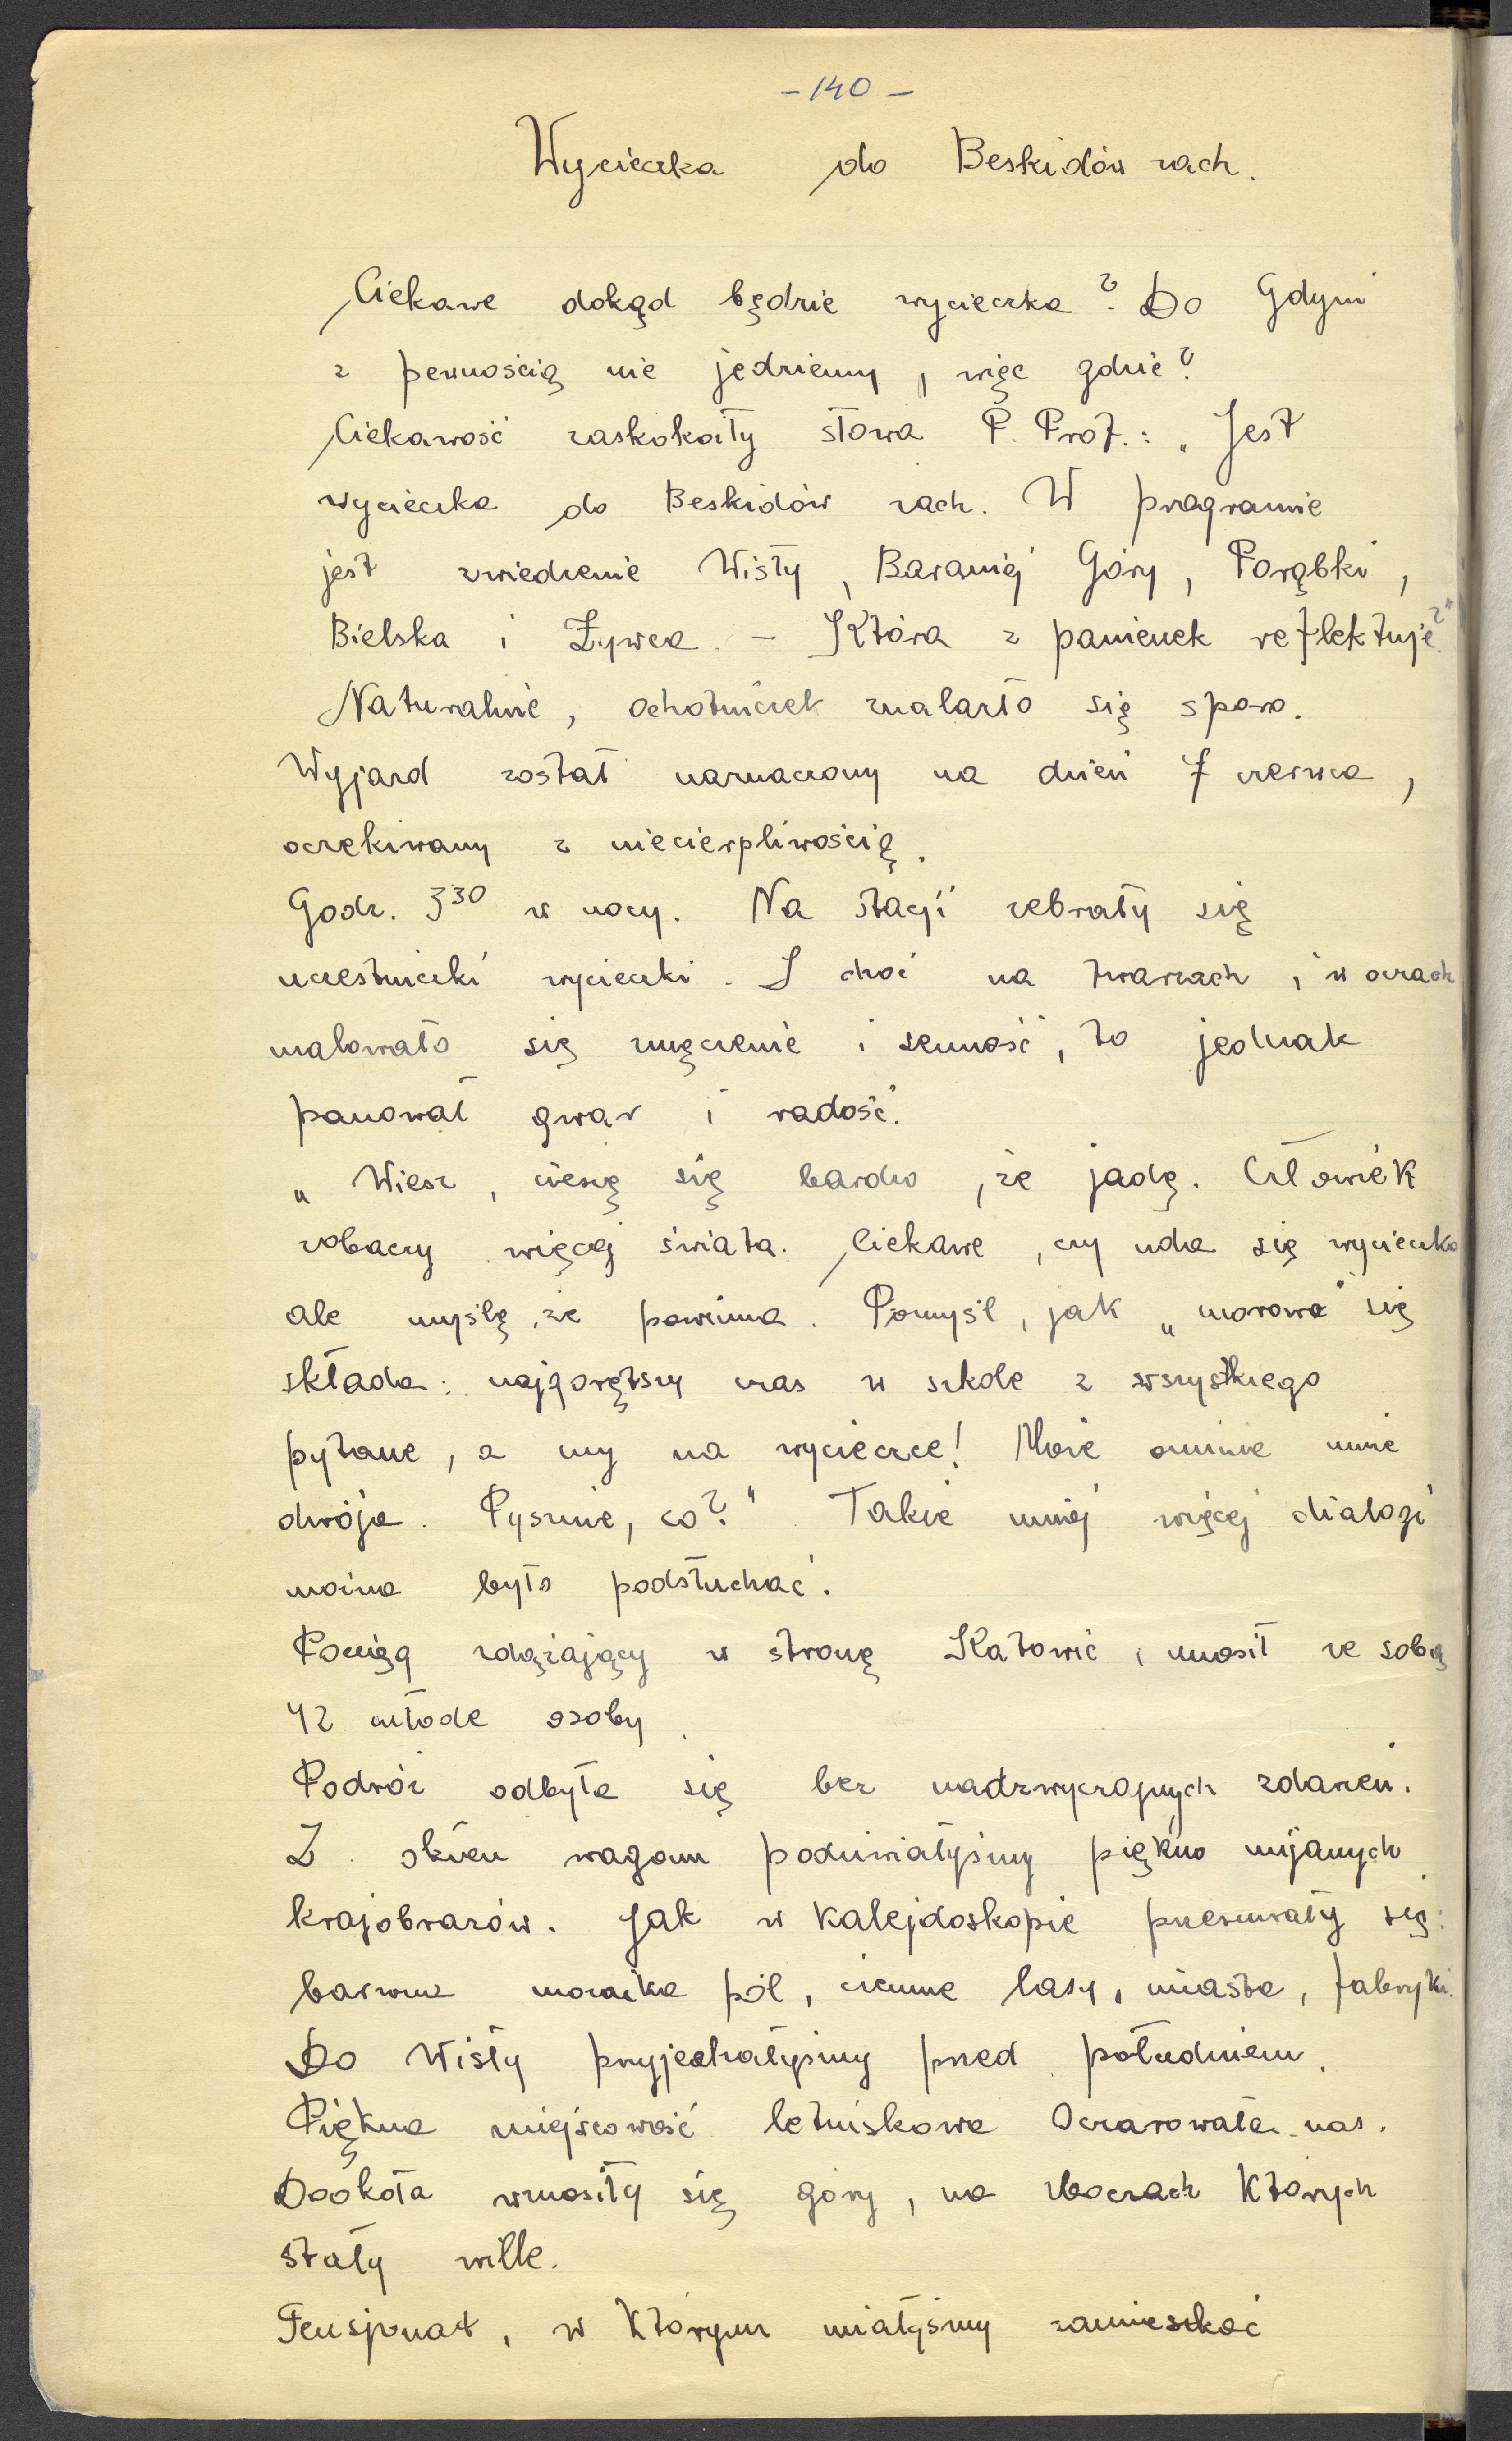 - 140 -
Wycieczka do Beskidów zach.
Ciekawe dokąd będzie wycieczka? Do Gdyni
z pewnością nie jedziemy, więc gdzie?
Ciekawość zaskokoiły słowa P. Prof.: „Jest
wycieczka do Beskidów zach. W programie
jest zwiedzenie Wisły, Baraniej Góry, Porąbki,
Bielska i Żywca. - Która z panienek reflektuje?"
Naturalnie, ochotniczek znalazło się sporo.
Wyjazd został naznaczony na dzień 7 czerwca,
oczekiwany z niecierpliwością.
Godz. 3³⁰ w nocy. Na stacji zebrały się
uczestniczki wycieczki. I choć na twarzach i w oczach
malowało się zmęczenie i senność, to jednak
panował gwar i radość.
„Wiesz, cieszę się bardzo, że jadę. Człowiek
zobaczy więcej świata. Ciekawe, czy uda się wycieczka
ale myślę, że powinna. Pomyśl, jak „morowo" się
składa: najgorętszy czas w szkole z wszystkiego
pytane, a my na wycieczce! Może ominie mnie
dwója. Pysznie, co?" Takie mniej więcej dialogi
można było podsłuchać.
Pociąg zdążający w stronę Katowic, unosił ze sobą
42 młode osoby.
Podróż odbyła się bez nadzwyczajnych zdarzeń.
Z okien wagonu podziwiałyśmy piękno mijanych
krajobrazów. Jak w kalejdoskopie przesuwały się:
barwna mozaika pól, ciemne lasy, miasta, fabryki.
Do Wisły przyjechałyśmy przed południem.
Piękna miejscowość letniskowa Oczarowała nas.
Dookoła wznosiły się góry, na zboczach których
stały wille.
Pensjonat, w którym miałyśmy zamieszkać